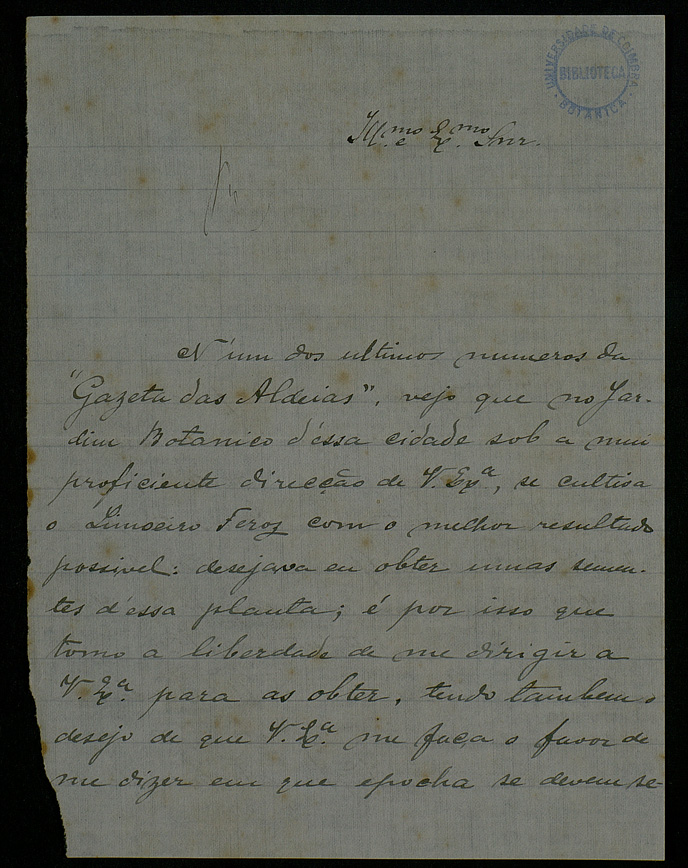 UNIVERSIDADE DE COIMBRA
BIBLIOTECA
BOTANICA
Ill.mo e Ex.mo Snr.
N'um dos ultimos numeros da
"Gazeta das Aldeias", vejo que no Jar-
dim Botanico d'éssa cidade sob a mui
proficiente direcção de V. Exª, se cultiva
o Limoeiro Feroz com o melhor resultado
possivel: desejava eu obter umas semen-
tes d'essa planta; é por isso que
tomo a liberdade de me dirigir a
V. Ex.ª para as obter, tendo tambem o
desejo de que V. Ex.ª me faça o favor de
me dizer em que epocha se devem se-